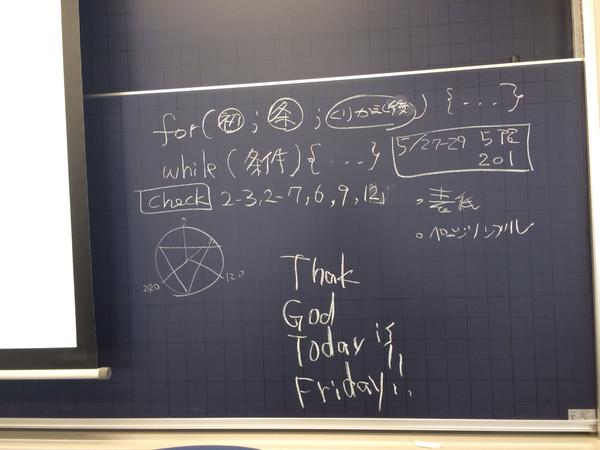 for(初;条;くりかえし後) {...}
while(条件){...}
5/27-29 5限
201
check 2-3,2-7,6,9,12
・表紙
・ページノンブル
0
240
120
Thak
God
Today is
Friday!!